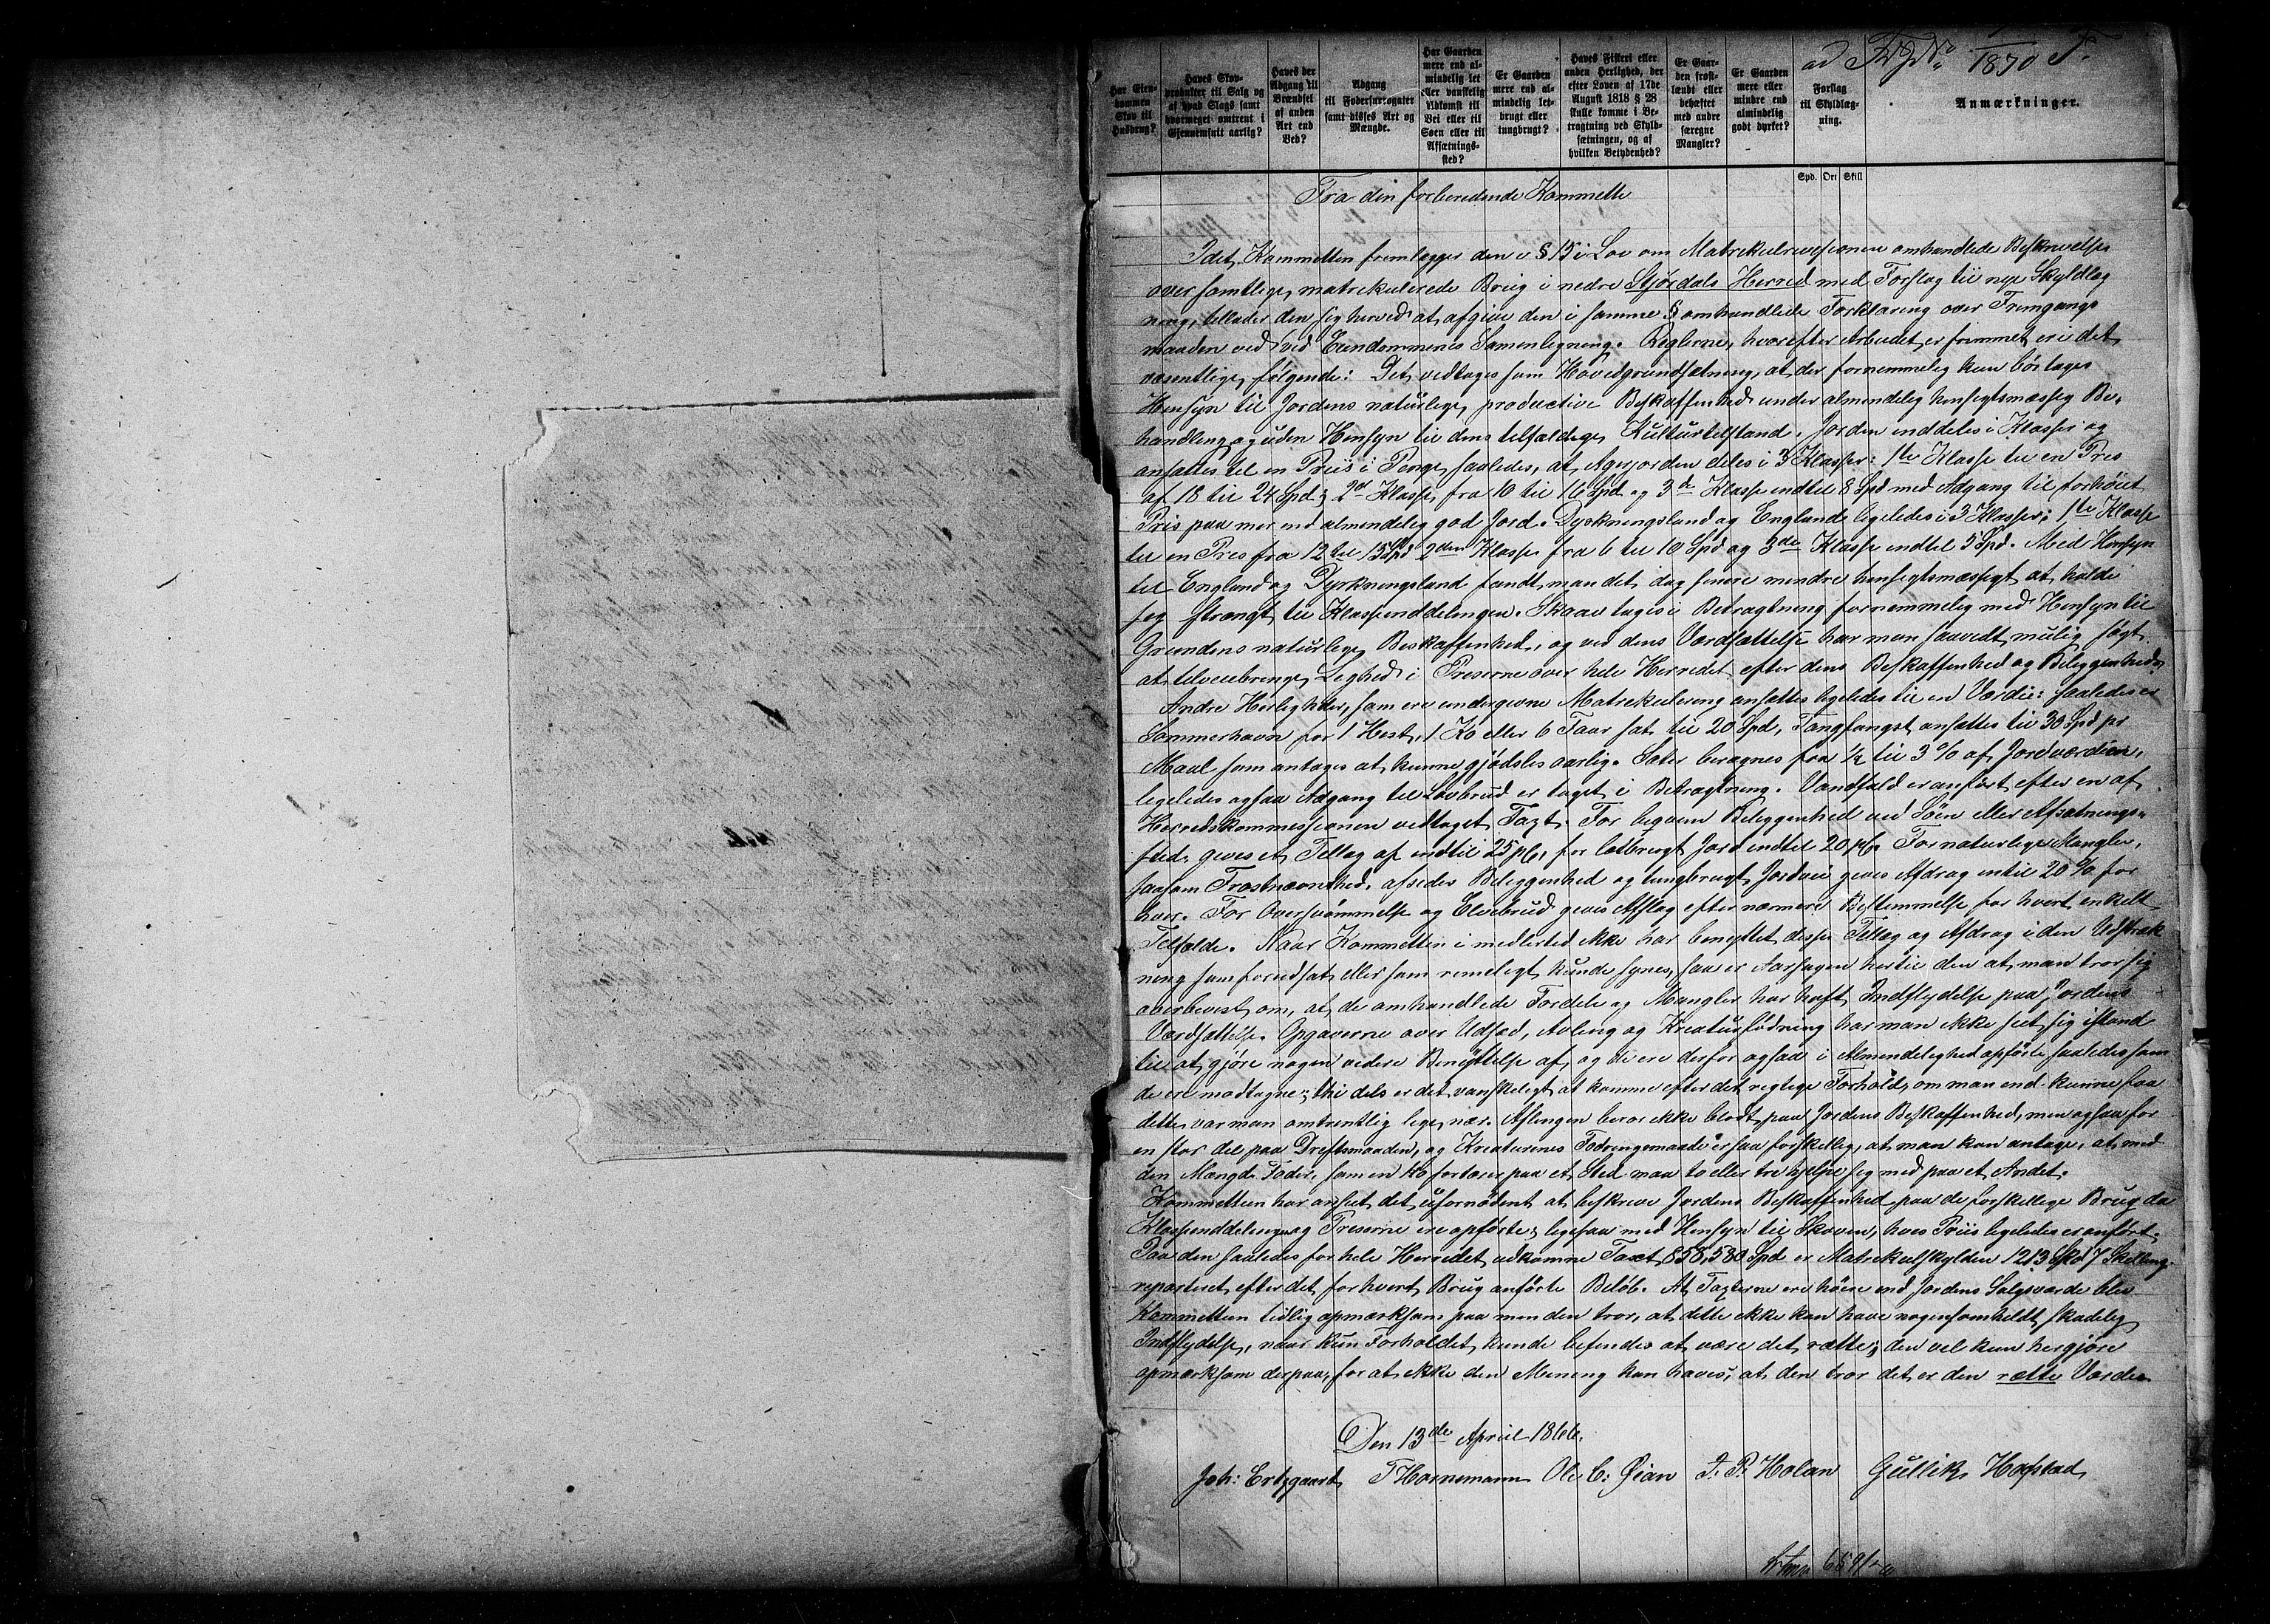 ad 1870 F.
Har Eiendommen Skov til Husbrug?
Haves Skovprodukter til Salg og af hvad Slags samt hvormeget omtrent i Gjennemsnit aarlig?
Haves der Adgang til Brændsel af anden Art end Ved?
Adgang til Foderfurrogater samt disses Art og Mængde.
Har Gaarden mere end almindelig let eller vanskelig Adkomst til Vei eller til Søen eller til Afsætningssted?
Er Gaarden mere end almindelig letbrugt eller tungbrugt?
Haves Fiskeri eller anden Herlighed, der efter Loven af 17de August 1818 § 28 skulle komme i Betragtning ved Skyldsætningen, og af hvilken Betydenhed?
Er Gaarden frostlændt eller behæftet med andre særegne Mangler?
Er Gaarden mere eller mindre end almindelig godt dyrket?
Forslag til Skyldlægning.
Anmærkninger.
Spd. Ort Skill
Fra din forberedende Kommitte
Idet Kommitten fremlægger den i § 15 i Lov om Matrikulrevisionen omhandlede Beskrivelse
over samtlige matrikulerede Brug i nedre Stjørdals Herred med Forslag til nye Skyldlæg
ning, tillader den sig herved at afgive den i samme § omhandlede Forklaring over Fremgangs
maaden ved ved Eiendommenes Samenligning. Reglerne, hvorefter Arbeidet er fremmet er i det
væsentlige følgende: Det vedtoges som Hovedgrundsætning, at der fornemmelig kun bør tages
Hensyn til Jordens naturlige productive Beskaffenhed under almindelig hensigtsmæssig Be-
handling og uden Hensyn til dens tilfældige Kulturtilstand. Jorden inddeles i Klasser og
ansattes til en Priis i Penge saaledes, at Agerjorden deles i 3 Klasser: 1te Klasse til en Pris
af 18 til 24 Spd; 2d Klasse fra 10 til 16 Spd og 3de Klasse indtil 8 Spd med Adgang til forhøiet
Pris paa mer end almindelig god Jord. Dyrkningsland og England ligeledes i 3 Klasser: 1te Klasse
til en Pris fra 12 til 15 Spd 2den Klasse fra 6 til 10 Spd og 3de Klasse indtil 5 Spd. Med Hensyn
til England og Dyrkningsland fandt man det dog senere mindre hensigtsmæssigt at holde
sig strængt til Klasseinddelingen. Skoven toges i Betragtning fornemmelig med Hensyn til
Grundens naturlige Beskaffenhed, og ved dens Værdsættelse har man saavidt mulig søgt
at tilveiebringe Lighed i Priserne over hele Herredet efter dens Beskaffenhed og Beliggenhed.
Andre Herligheder, som ere undergivne Matrikulering ansattes ligeledes til en Værdie: saaledes er
Sommerhavn for 1 Hest, 1 Ko eller 6 Faar sat til 20 Spd, Tangfangst ansattes til 30 Spd pr
Maal som antages at kunne gjødsles aarlig. Sæter beregnes fra ½ til 3 % af Jordværdien,
ligeledes ogsaa Adgang til Løvbrud er taget i Betragtning. Vandfald er anført efter en af
Herredskommissionen vedtaget Taxt. For beqvem Beliggenhed ved Søen eller Afsætnings-
sted gives et Tillæg af indtil 25 pC, for letbrugt Jord indtil 20 pC. For naturlige Mangler,
saasom Frostnævnthed, afsides Beliggenhed og tungbrugt Jordvei gives Afdrag intil 20 % for
hver. For Oversvømmelse og Elvebrud gives Afslag efter nærmere Bestemmelse for hvert enkelt
Tilfælde. Naar Kommitten imedlertid ikke har benyttet disse Tillæg og Afdrag i den Udstræk
ning som forudsat eller som rimeligt kunde synes, saa er Aarsagen hertil den at man tror sig
overbevist om, at de omhandlede Fordele og Mangler har haft Indflydelse paa Jordens
Værdsættelse. Opgaverne over Udsæd, Avling og Kreaturfødning har man ikke seet sig istand
til at gjøre nogen videre Benyttelse af, og de ere derfor ogsaa i Almindelighed opførte saaledes som
de ere modtagne; thi dels er det vanskeligt at komme efter det rigtige Forhold, om man end kunne faa
dette var man omtrentlig lige nær. Aflingen beror ikke blodt paa Jordens Beskaffenhed, men ogsaa for
en stor del paa Driftsmaaden, og Kreaturenes Fodringsmaade er saa forskellig, at man kan antage, at med
den Mængde Foder, som en Ko fortærer paa et Sted maa to eller tre hjelpe sig med paa et Andet.
Kommitten har anseet det ufornødent at beskrive Jordens Beskaffenhed paa de forskellige Brug da
Klasseinddelingen og Priserne ere opførte; ligesaa med Hensyn til Skoven, hves Priis ligeledes er anført.
Paa den saaledes for hele Herredet udkomne Taxt 858,580 Spd er Matrikulskylden 1213 Spd 7 Skilling
reparteret efter det for hvert Brug anførte Beløb. At Taxterne ere høiere end Jordens Salgsværde blev
Kommitten tidlig opmærksom paa men den tror, at dette ikke kan have nogensomheldst skadelig
Indflydelse, naar kun Forholdet kunde befindes at være det rætte; den vel kun her gjøre
opmærksom derpaa, for at ikke den Mening kan haves, at den tror det er den rætte Værdie.
Den 13de April 1866.
Joh: Ertzgaard T Hornemann Ole C: Øian P. Holan Gullik Hafstad